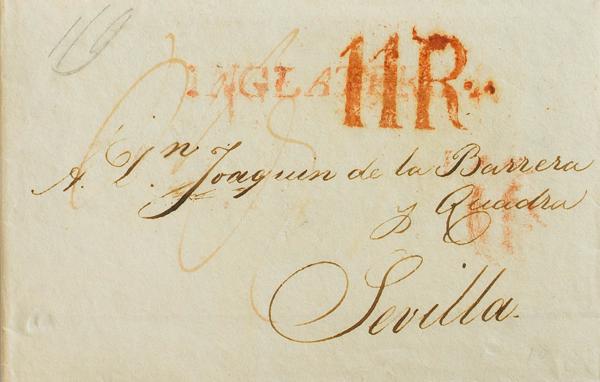 110
INGLATERRA
11R.s
A. D.n Joaquin de la Barrera
y Quadra
Sevilla.